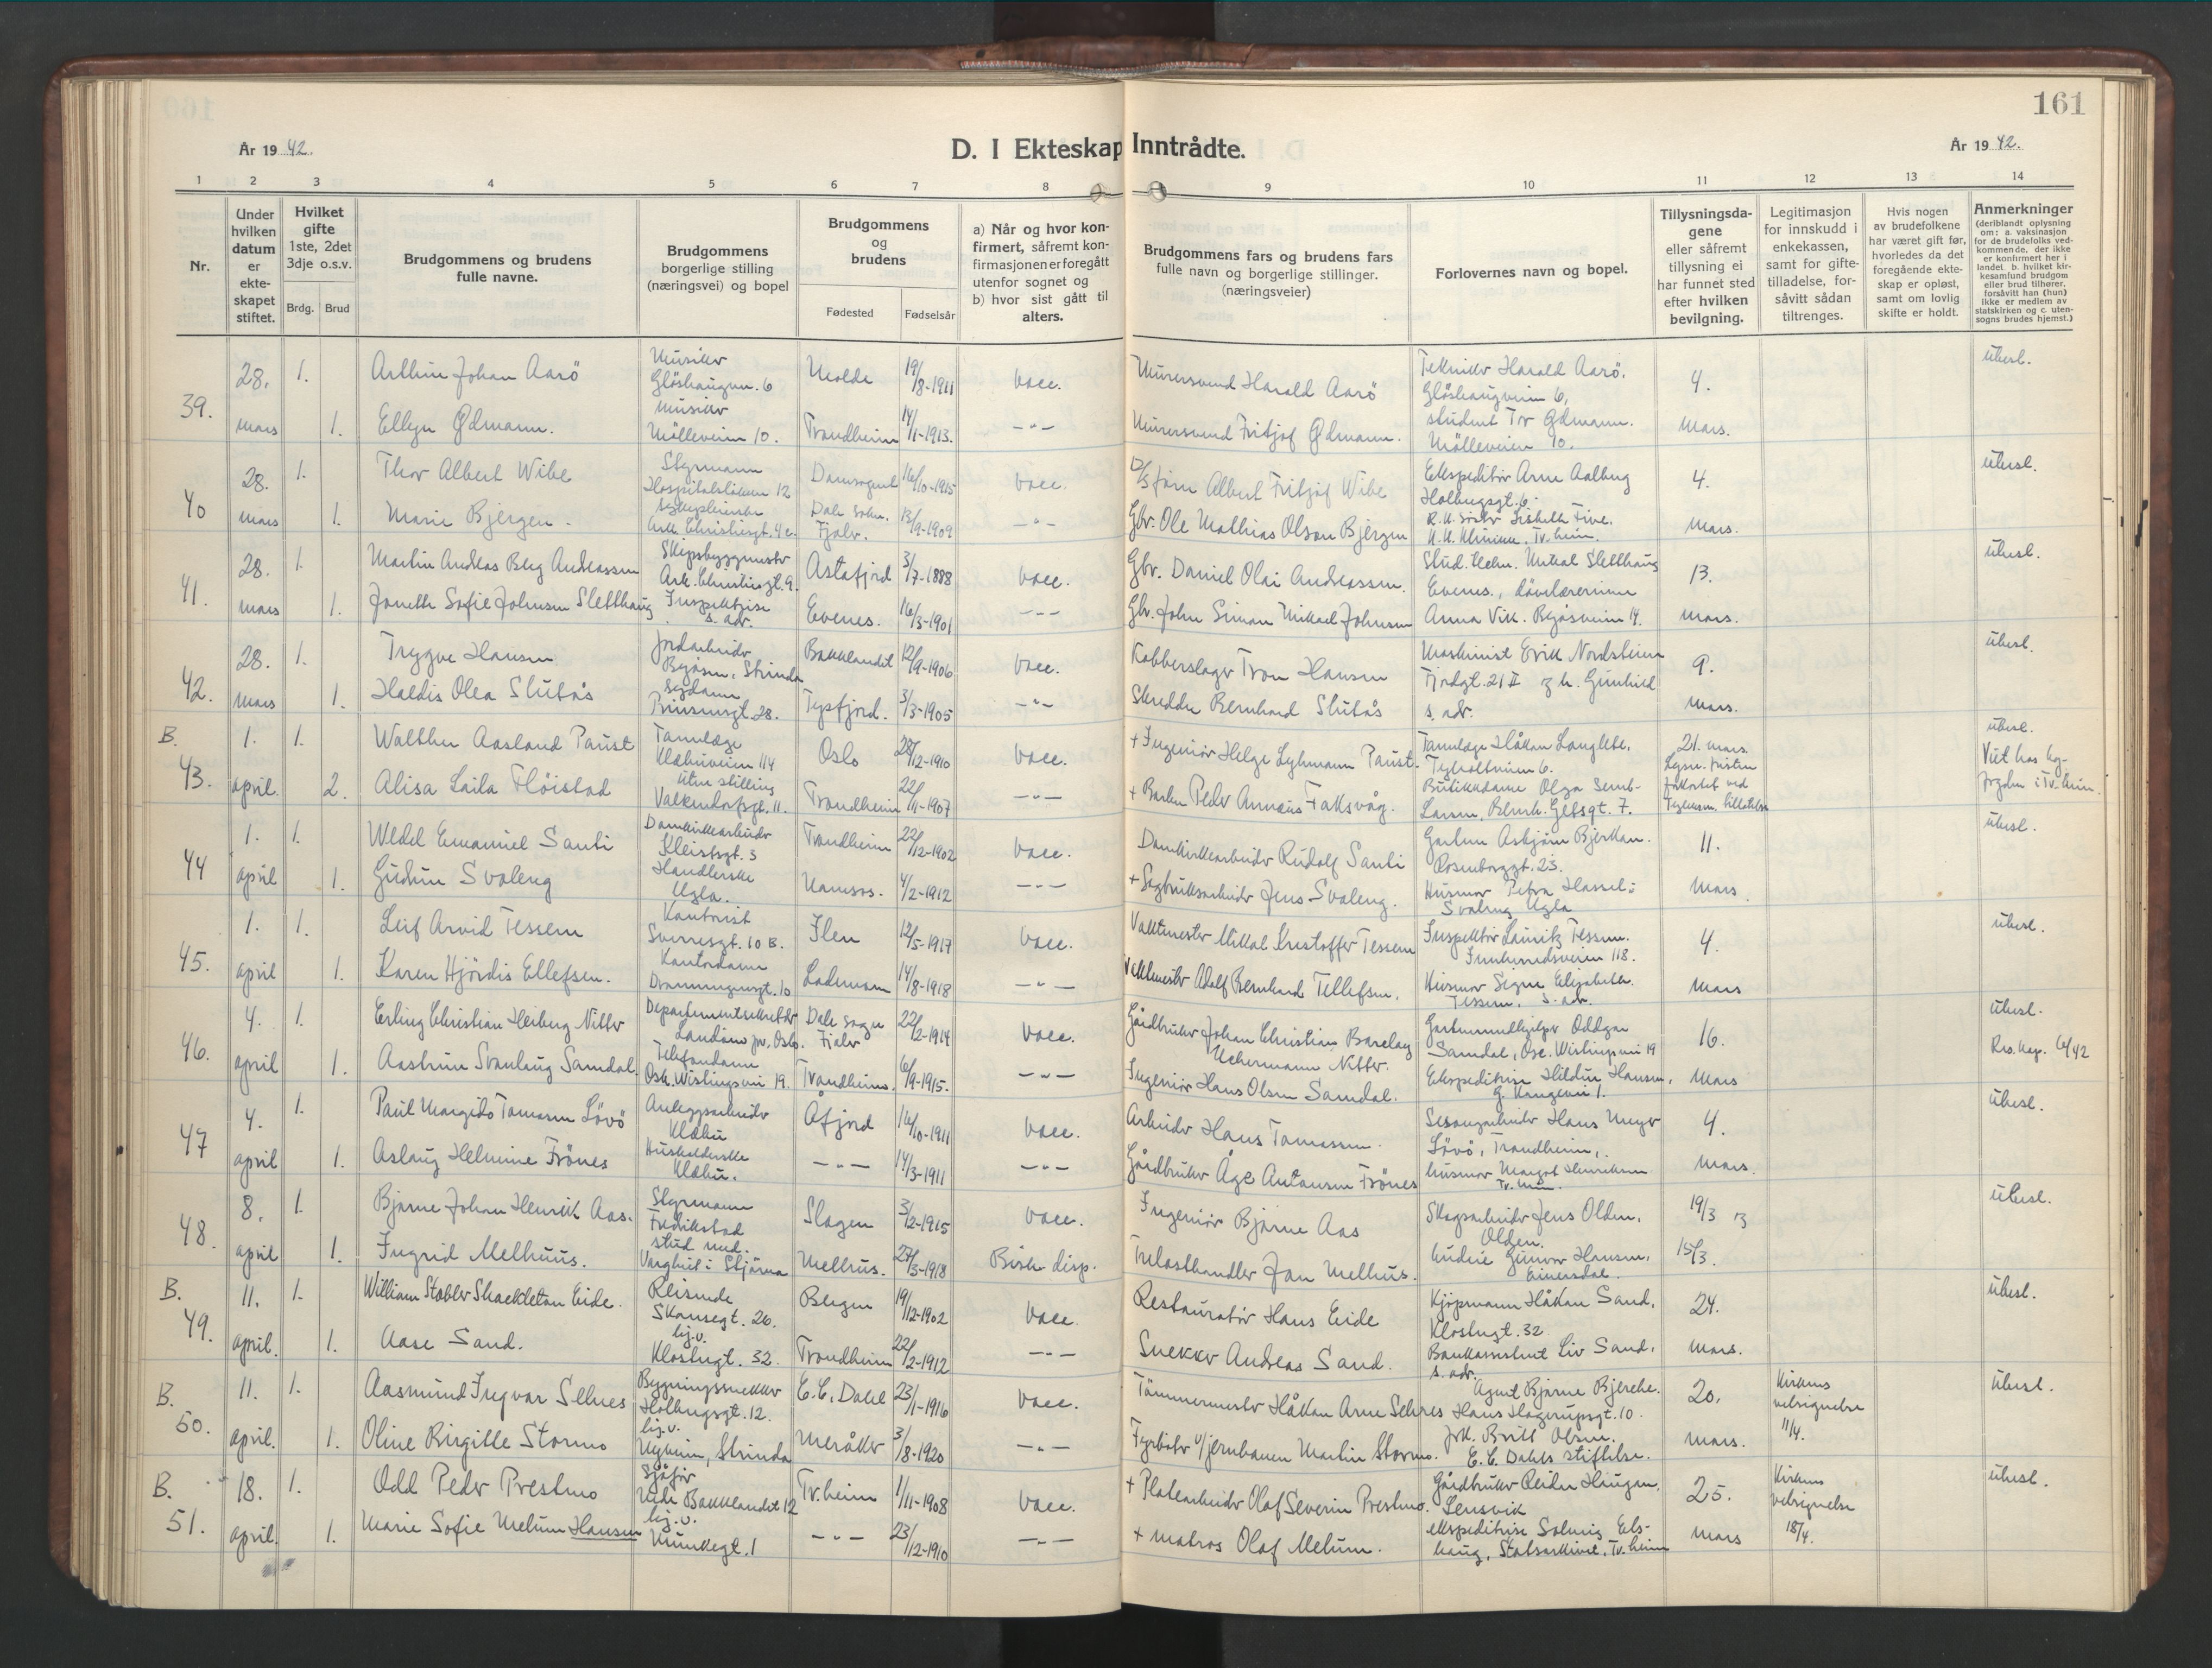 161
År 1942.
D. I Ekteskap Inntrådte.
År 1942.
1 2 3 4 5 6 7 8 9 10 11 12 13 14
Nr.
Under hvilken datum er ekte- skapet stiftet.
Hvilket gifte 1ste, 2det 3dje o.s.v.
Brdg. Brud
Brudgommens og brudens fulle navne.
Brudgommens borgerlige stilling (næringsvei) og bopel
Brudgommens og brudens
Fødested Fødselsår
a) Når og hvor kon- firmert, såfremt kon- firmasjonen er foregått utenfor sognet og b) hvor sist gått til alters.
Brudgommens fars og brudens fars fulle navn og borgerlige stillinger. (næringsveier)
Forlovernes navn og bopel.
Tillysningsda- gene eller såfremt tillysning ei har funnet sted efter hvilken bevilgning.
Legitimasjon for innskudd i enkekassen, samt for gifte- tilladelse, for- såvitt sådan tiltrenges.
Hvis nogen av brudefolkene har været gift før, hvorledes da det foregående ekte- skap er opløst, samt om lovlig skifte er holdt.
Anmerkninger (deriblandt oplysning om: a. vaksinasjon for de brudefolks ved- kommende, der ikke er konfirmert her i landet. b. hvilket kir- kesamfund brudgom eller brud tilhører, forsåvitt han (hun) ikke er medlem av statskirken og c. uten- sogns brudes hjemst.)
39.
28. 1. Arthur Johan Aarö
Musiker Glöshaugvn. 6
Molde 19/8-1911 vacc.
Murersvend Harald Aarö
Tekniker Harald Aarö. Glöshaugveien 6,
4.
ubesl.
mars 1. Ellen Ødmann.
Musiker Mölleveien 10.
Trondheim 14/1-1913. -"-
Murersvend Fritjof Ødmann.
student Tor Ødmann. Mölleveien 10.
mars.
40
28. 1. Thor Albert Wibe
Styrmann Hospitalslökkan 12
Domsognet 16/10-1915 vacc.
Albert Fritjof Wibe
Ekspeditör Arne Aalberg Holbergsgt. 6.
4.
ubesl.
mars 1. Marie Bjergen.
sykepleierske Ark. Christiesgt. 4 c.
Dale sokn. Fjaler. 13/9-1909 -"-
Gbr. Ole Mathias Olson Bjergen
R.K. söster Lisbeth Five. K.K. Klinikk, Tr.heim.
mars.
41.
28. 1. Martin Andreas Berg Andreassen
Skipsbyggmester Ark. Christiesgt. 9.
Astafjord 3/7-1888 vacc.
Gbr. Daniel Olai Andreassen.
Stud. techn. Mikal Sletthaug Evenes.,
13.
ubesl.
mars 1. Janette Sofie Johnsen Sletthaug
Inspektrise s. adr.
Evenes. 16/3-1901 -"-
Gbr. John Simon Mikael Johnsen
dövelærerinne Anna Vik. Byåsveien 14.
mars.
42.
28. 1. Trygve Hansen
Jordarbeider Byåsen, Strinda
Bakklandet 12/9-1906 vacc.
Kobberslager Tron Hansen
Maskinist Erik Nordsteien Fjordgt. 21 II og h. Gunhild
9.
ubesl.
mars 1. Haldis Olea Slutås
sydame Prinsensgt. 28.
Tysfjord. 3/3-1905 -"-
Skredder Bernhard Slutås
s. adr.
mars.
B. 43.
1. 1. Walther Aasland Paust
Tannlege Klæbuveien 114
Oslo 28/12-1910 vacc.
+ Ingeniör Helge Lyhmann Paust.
Tannlege Håkon Langlete. Tyholtveien 6.
21. mars.
ubesl.
april. 2. Alisa Laila Flöistad
uten stilling Valkendorfsgt. 11.
Trondheim 22/11-1907 -"-
+ Baker Peder Annæus Faksvåg.
Butikkdame Olga Semb- Larsen, Bernh. Getzgt. 7.
Lysn. fristen forkortet ved
Viet hos by- fogden i Tr.heim.
44
1. 1. Wedel Emanuel Santi
Domkirkearbeider Kleistsgt. 3
Trondheim 22/12-1902 vacc.
Domkirkearbeider Rudolf Santi
Gartner Asbjörn Bjerkan. Rosenborggt. 23.
11.
ubesl.
april 1. Gudrun Svaleng
Handlerske Ugla.
Namsos. 4/2-1912 -"-
+ Sagbruksarbeider Jens Svaleng.
Husmor Petra Hassel: Svaleng Ugla
mars
45.
1. 1. Leif Arvid Tessem
Kontorist Sverresgt. 10 B.
Ilen 12/5-1917 vacc.
Vaktmester Mikal Kristoffer Tessem
Inspektör Lauritz Tessem. Innherredsveien 118.
4.
ubesl.
april 1. Karen Hjördis Ellefsen.
Kontordame Dronningensgt. 10
Lademoen 14/8-1918 -"-
Vaktmester Adolf Bernhard Tellefsen.
Husmor Signe Elisabeth. Tessem. s. adr.
mars
46.
4. 1. Erling Christian Heiberg Nitter
Departementsekretær Oslo.
Dale sogn Fjaler 22/2-1914 vacc.
Gårdbruker Johan Christian Barclay Uchermann Nitter.
Oddgar Samdal, Osc. Wistingsvei 19
16.
ubesl.
april 1. Aastrun Svanlaug Samdal.
Telefondame Osk. Wistingsvei 19.
Trondheim. 6/9-1915. -"-
Ingeniör Hans Olsen Samdal.
Ekspeditrise Hildur Hansen, G. Kongevei 1.
mars
47
4. 1. Paul Margido Tomasen Lövö
Anleggsarbeider Klæbu
Åfjord 16/10-1911 vacc.
Arbeider Hans Tomassen.
Sesongarbeider Hans Meyer Lövö, Trondheim.,
4.
ubesl.
april 1. Aslaug Helmine Frönes
Husholderske Klæbu.
-"- 14/3-1911 -"-
Gårdbruker Åge Antonsen Frönes
husmor Margot Henriksen Tr.heim.
mars.
48.
8. 1. Bjarne Johan Henrik Aas.
Styrmann Fredrikstad
Slagen 3/2-1915 vacc.
Ingeniör Bjarne Aas
Skogsarbeider Jens Olden. Olden.
19/3 og
ubesl.
april 1. Ingrid Melhuus.
stud med. Varghiet i Stjörna
Melhus. 27/3-1918 Bisk. disp.
Trelasthandler Jon Melhus.
Gunvor Hansen, Einersdal.
15/3.
B. 49.
11. 1. William Stabler Shackleton Eide.
Reisende Skansegt. 26.
Bergen 19/12-1902 vacc.
Restauratör Hans Eide
Kjöpmann Håkon Sand. Klostergt. 32
24.
ubesl.
april. 1. Aase Sand.
lig. v. Klostergt. 32.
Trondheim 22/2-1912 -"-
Snekker Andreas Sand.
Bankassistent Liv Sand. s. adr.
mars.
B. 50.
11. 1. Aasmund Ingvar Selnes
Bygningssnekker Holbergsgt. 12.
E.C. Dahl 23/1-1916 vacc.
Tömmermester Håkon Arne Selnes
Agent Bjarne Bjerche. Hans Hagerupsgt. 10.
20.
Kirkens velsignelse 11/4.
ubesl.
april. 1. Oline Birgitte Stormo
lig. v. Nyheim, Strinda
Meråker 3/8-1920 -"-
Fyrböter v/jernbanen Martin Stormo.
frk. Britt Olsen. E. C. Dahls stiftelse.
mars.
B. 51.
18. 1. Odd Peder Prestmo
Sjåför Nedre Bakklandet 12
Tr.heim 1/11-1908 vacc.
+ Platearbeider Olaf Severin Prestmo.
Gårdbruker Reidar Haugen. Lensvik
25.
Kirkens velsignelse 18/4.
ubesl.
april. 1. Marie Sofie Melum Hansen
lig. v. Munkegt. 1
-"- 23/12-1910 -"-
+ matros Olaf Melum.
ekspeditrise Solveig Eids- haug, Statsarkivet, Tr.heim
mars